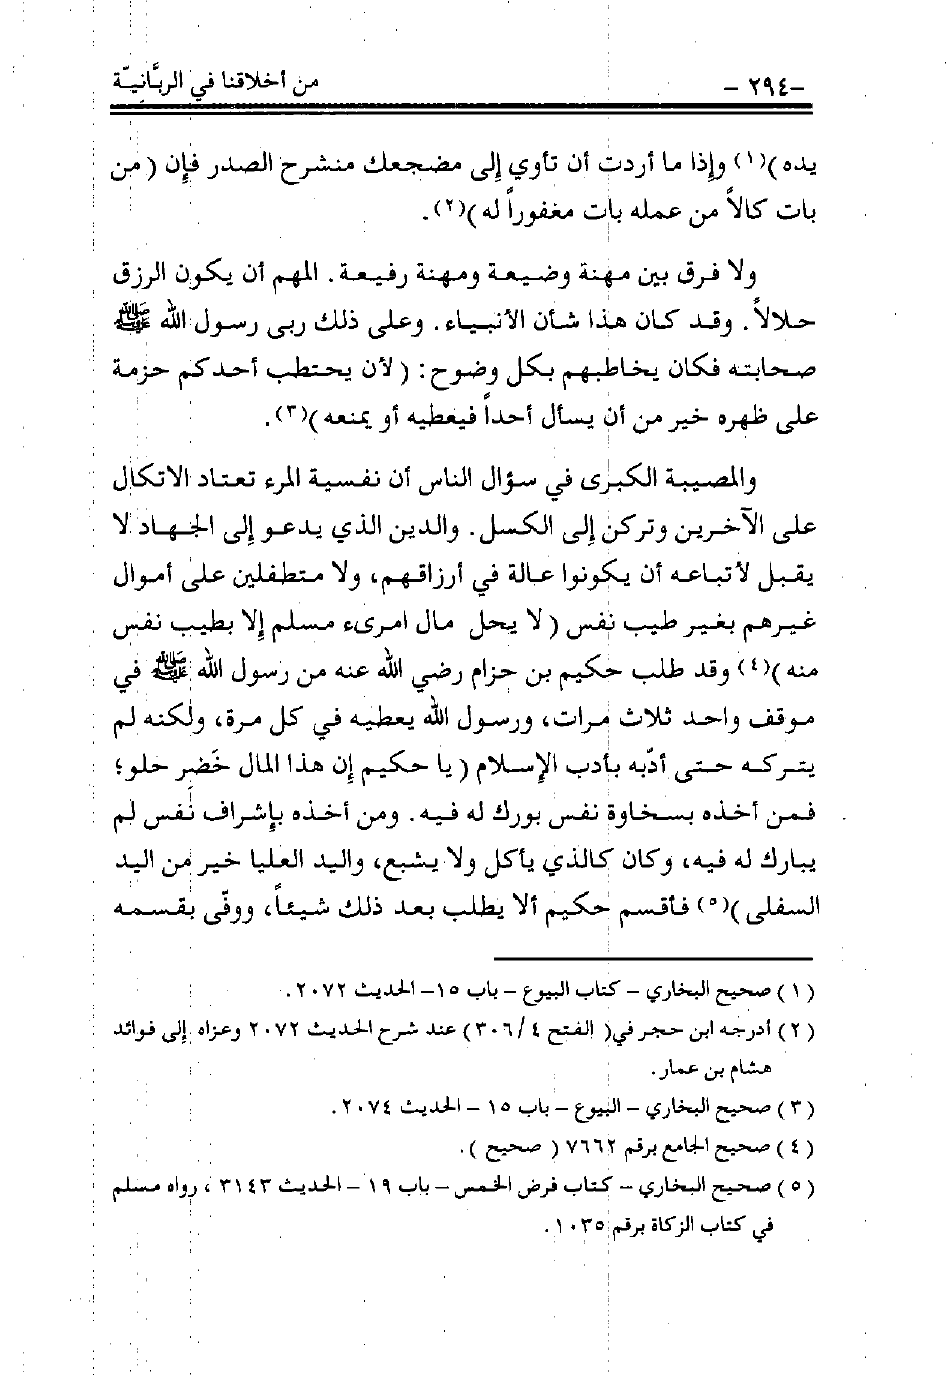 -٢٩٤- من أخلاقنا في الربَّانِيّة
يده )(١) وإذا ما أردت أن تأوي إلى مضجعك منشرح الصدر فإن ( من
بات كالاً من عمله بات مغفوراً له )(٢).
ولا فرق بين مهنة وضيعة ومهنة رفيعة. المهم أن يكون الرزق
حلالاً. وقد كان هذا شأن الأنبياء. وعلى ذلك ربى رسول الله ﷺ
صحابته فكان يخاطبهم بكل وضوح: ( لأن يحتطب أحدكم حزمة
على ظهره خير من أن يسأل أحداً فيعطيه أو يمنعه )(٣).
والمصيبة الكبرى في سؤال الناس أن نفسية المرء تعتاد الاتكال
على الآخرين وتركن إلى الكسل. والدين الذي يدعو إلى الجهاد لا
يقبل لأتباعه أن يكونوا عالة في أرزاقهم، ولا متطفلين على أموال
غيرهم بغير طيب نفس ( لا يحل مال امرىء مسلم إلا بطيب نفس
منه )(٤) وقد طلب حكيم بن حزام رضي الله عنه من رسول الله ﷺ في
موقف واحد ثلاث مرات، ورسول الله يعطيه في كل مرة، ولكنه لم
يتركه حتى أدّبه بأدب الإسلام ( يا حكيم إن هذا المال خَضِر حلو؛
فمن أخذه بسخاوة نفس بورك له فيه. ومن أخذه بإشراف نفس لم
يبارك له فيه، وكان كالذي يأكل ولا يشبع، واليد العليا خير من اليد
السفلى )(٥) فأقسم حكيم ألا يطلب بعد ذلك شيئاً، ووفّى بقسمه
(١) صحيح البخاري - كتاب البيوع - باب ١٥- الحديث ٢٠٧٢.
(٢) أدرجه ابن حجر في( الفتح ٣٠٦/٤) عند شرح الحديث ٢٠٧٢ وعزاه إلى فوائد
هشام بن عمار.
(٣) صحيح البخاري - البيوع - باب ١٥ - الحديث ٢٠٧٤.
(٤) صحيح الجامع برقم ٧٦٦٢ ( صحيح ).
(٥) صحيح البخاري - كتاب فرض الخمس - باب ١٩ - الحديث ٣١٤٣ ، رواه مسلم
في كتاب الزكاة برقم ١٠٣٥.